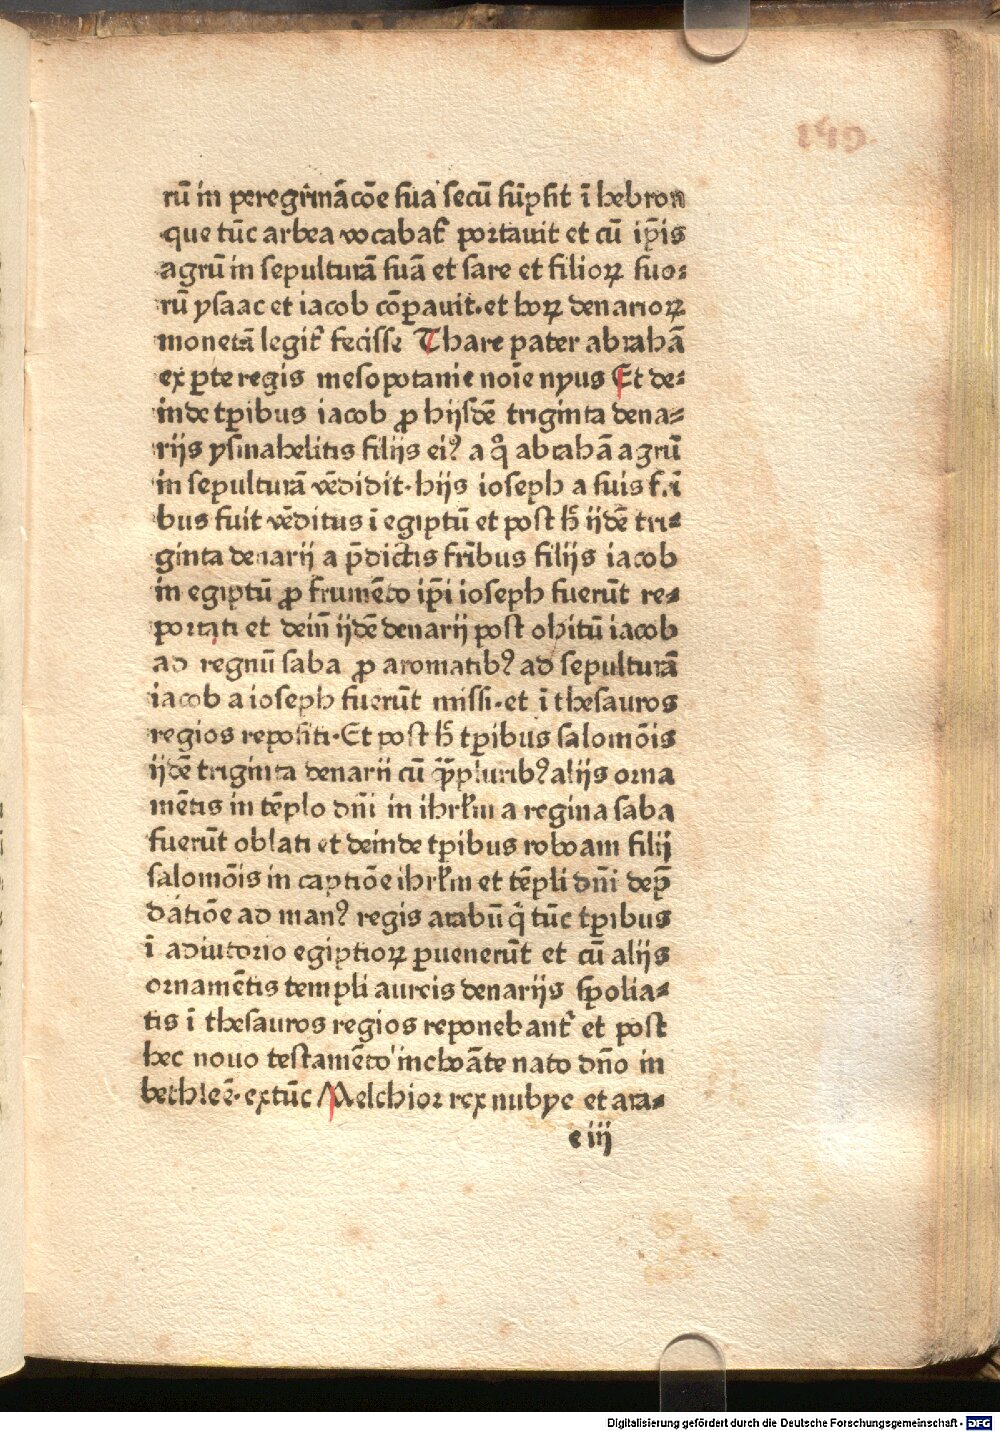 149
rū in peregrinācōe sua secū sūpsit ī hebron
que tūc arbea vocabat᷑ portauit et cū ip̄is
agrū in sepulturā suā et sare et filioꝝ suo-
rū ysaac et iacob cōꝑauit·et hoꝝ denarioꝝ
monetā legit᷑ fecisse Thare pater abrahā
ex ꝑte regis mesopotanie noīe nyus Et de-
inde tꝑibus iacob ꝓ hijsdē triginta dena-
rijs ysmahelitis filijs eiꝰ a qͦ abrahā agrū
in sepulturā vēdidit·hijs ioseph a suis f.ī
bus fuit vēditus ī egiptū et post h̄ ijdē tri-
ginta denarij a p̄dictis fr̄ibus filijs iacob
in egiptū ꝓ frumēto ip̄i ioseph fuerūt re-
portati et dein̄ ijdē denarij post obitū iacob
ad regnū saba ꝓ aromatibꝰ ad sepulturā
iacob a ioseph fuerūt missi·et ī thesauros
regios repositi·Et post h̄ tꝑibus salomōis
ijdē triginta denarii cū q̄ꝑpluribꝰ alijs orna
mētis in tēplo dn̄i in ihrl̄m a regina saba
fuerūt oblati et deinde tꝑibus roboam filij
salomōis in captiōe ihrl̄m et tēpli dn̄i dep̄
datiōe ad manꝰ regis arabū q̄ tūc tꝑibus
ī adiutorio egiptioꝝ ꝑuenerūt et cū alijs
ornamētis templi aureis denarijs spolia-
tis ī thesauros regios reponebant᷑ et post
hec nouo testamēto inchoāte nato dn̄o in
bethleē·extūc Melchior rex nubye et ara-
e iij
Digitalisierung gefördert durch die Deutsche Forschungsgemeinschaft - DFG